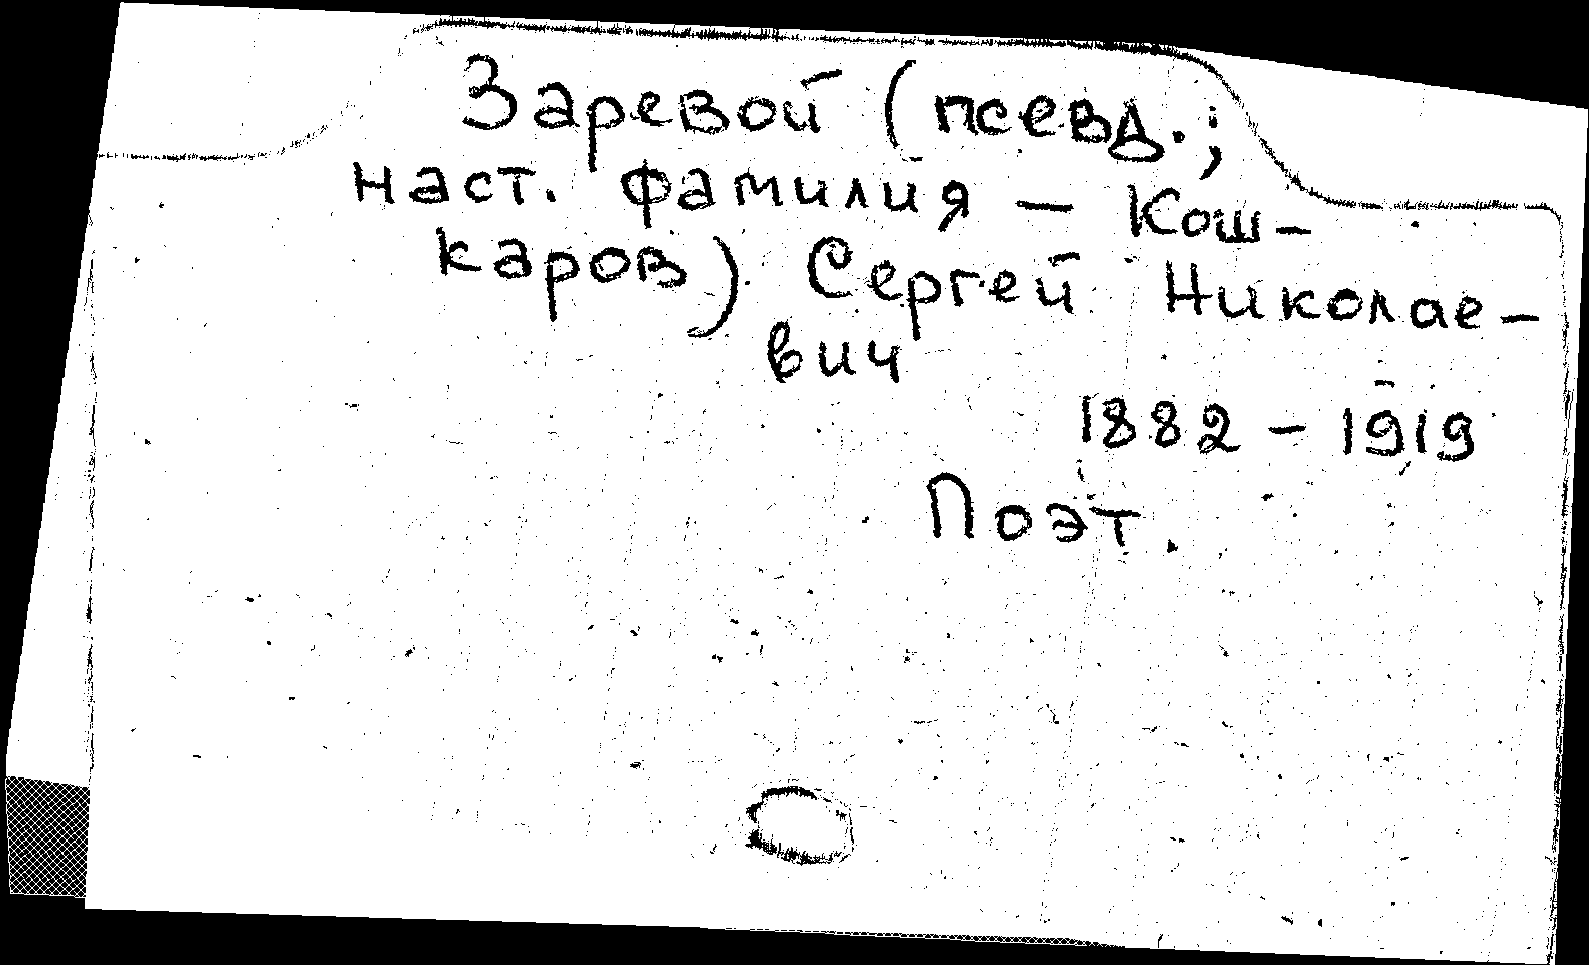 Заревой (псевд.;
наст. фамилия — Кош-
каров) Сергей Николае-
вич
1882 - 1919
Поэт.